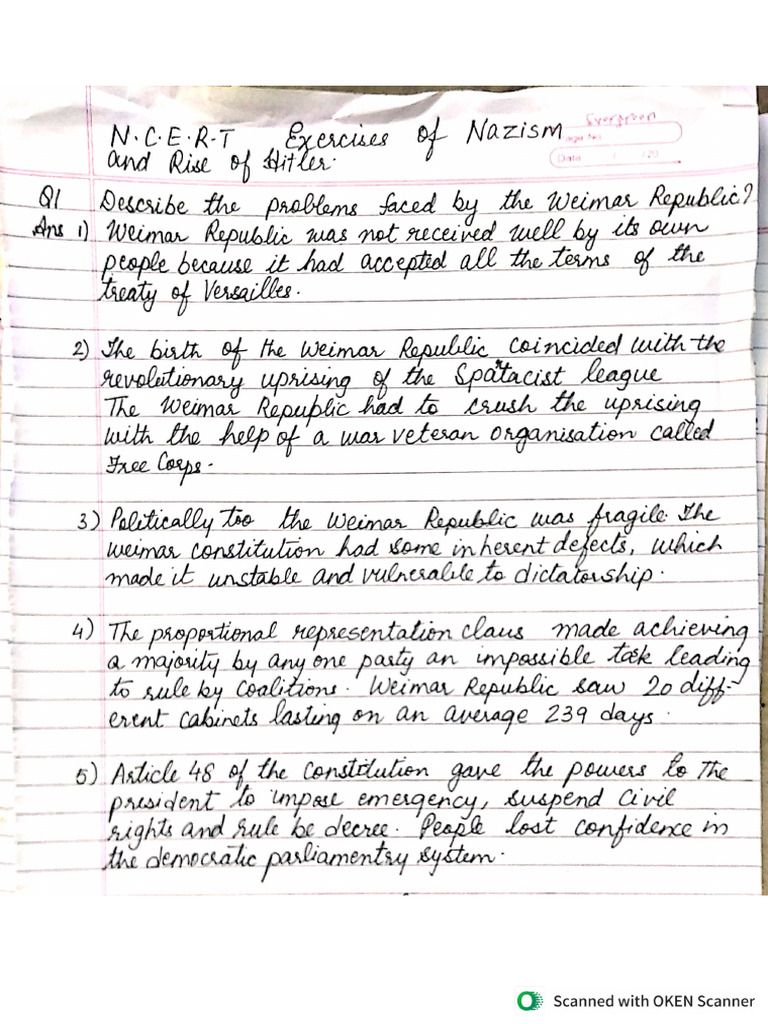 Evergreen
Page No.
Date / / 20
N.C.E.R.T Exercises of Nazism
and Rise of Hitler.
Q1 Describe the problems faced by the Weimar Republic?
Ans 1) Weimar Republic was not received well by its own
people because it had accepted all the terms of the
treaty of Versailles.
2) The birth of the Weimar Republic coincided with the
revolutionary uprising of the Spartacist league
The Weimar Republic had to crush the uprising
with the help of a war veteran organisation called
Free Corps.
3) Politically too the Weimar Republic was fragile. The
weimar constitution had some inherent defects, which
made it unstable and vulnerable to dictatorship.
4) The proportional representation claus made achieving
a majority by any one party an impossible task leading
to rule by Coalitions. Weimar Republic saw 20 diff-
erent cabinets lasting on an average 239 days.
5) Article 48 of the constitution gave the powers to The
president to impose emergency, suspend civil
rights and rule be decree. People lost confidence in
the democratic parliamentry system.
Scanned with OKEN Scanner